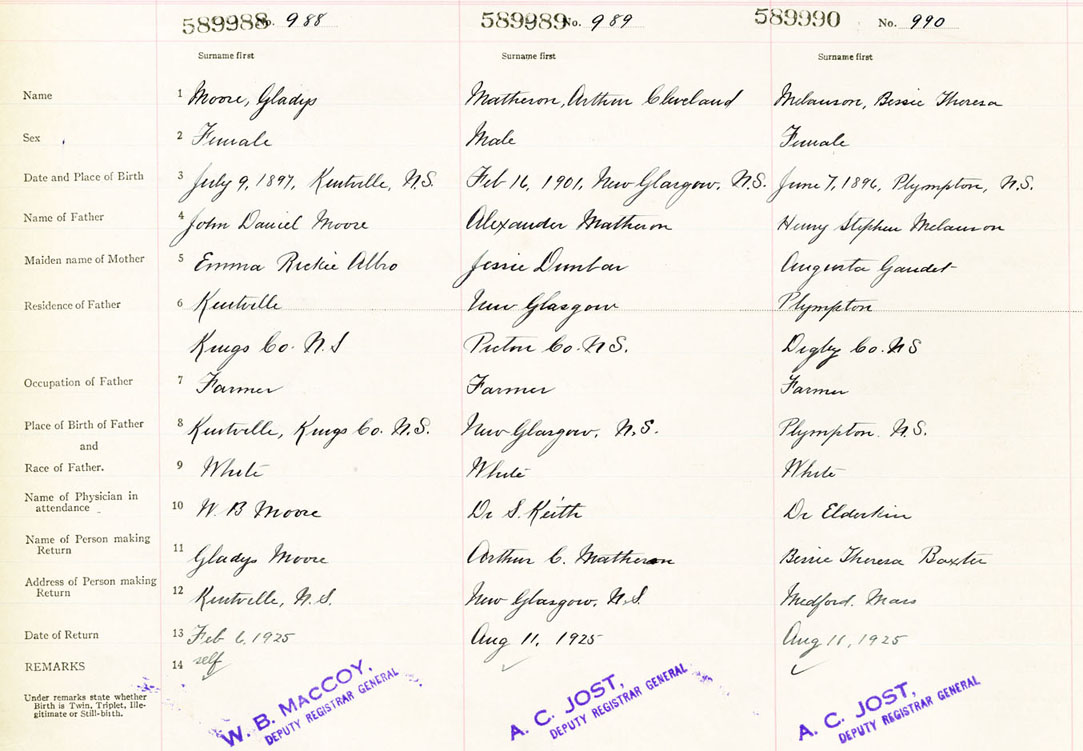 589988 No. 988 589989 No. 989 589990 No. 990
Surname first Surname first Surname first
Name 1 Moore, Gladys Matheson, Arthur Cleveland Melanson, Bessie Theresa
Sex 2 Female Male Female
Date and Place of Birth 3 July 9, 1897, Kentville, N.S. Feb 16, 1901, New Glasgow, N.S. June 7, 1896, Plympton, N.S.
Name of Father 4 John Daniel Moore Alexander Matheson Henry Stephen Melanson
Maiden name of Mother 5 Emma Rickie Albro Jessie Dunbar Augusta Gaudet
Residence of Father 6 Kentville New Glasgow Plympton
Kings Co. N.S Pictou Co. N.S. Digby Co. N.S
Occupation of Father 7 Farmer Farmer Farmer
Place of Birth of Father 8 Kentville, Kings Co. N.S. New Glasgow, N.S. Plympton. N.S.
and
Race of Father. 9 White White White
Name of Physician in attendance 10 W. B Moore Dr S. Keith Dr Elderkin
Name of Person making Return 11 Gladys Moore Arthur C. Matheson Bessie Theresa Baxter
Address of Person making Return 12 Kentville, N.S. New Glasgow, N.S Medford, Mass
Date of Return 13 Feb 6, 1925 Aug 11, 1925 Aug 11, 1925
REMARKS 14 self
Under remarks state whether
Birth is Twin, Triplet, Ille-
gitimate or Still-birth.
W. B. MacCOY, A. C. JOST, A. C. JOST,
DEPUTY REGISTRAR GENERAL DEPUTY REGISTRAR GENERAL DEPUTY REGISTRAR GENERAL